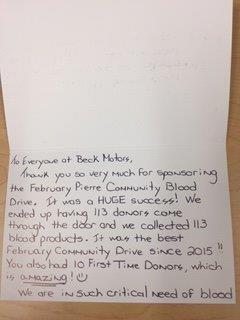 To Everyone at Beck Motors,
Thank you so very much for sponsoring
the February Pierre Community Blood
Drive. It was a HUGE success! We
ended up having 113 donors come
through the door and we collected 113
blood products. It was the best
February Community Drive since 2015!!
You also had 10 First Time Donors, which
is amazing! ☺
We are in such critical need of blood